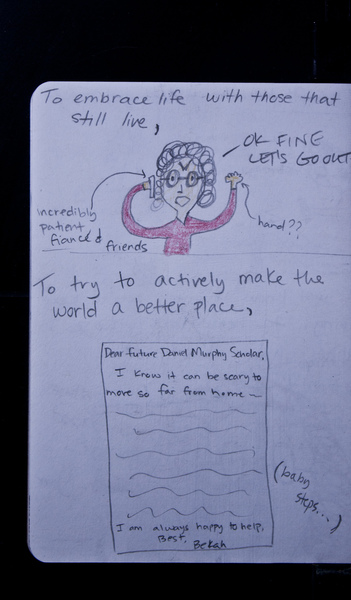 To embrace life with those that
still live,
OK FINE
LET'S GO OUT
incredibly
patient
fiancé &
friends
hand??
To try to actively make the
world a better place,
Dear future Daniel Murphy Scholar,
I know it can be scary to
move so far from home —
(baby
steps...)
I am always happy to help,
Best,
Bekah